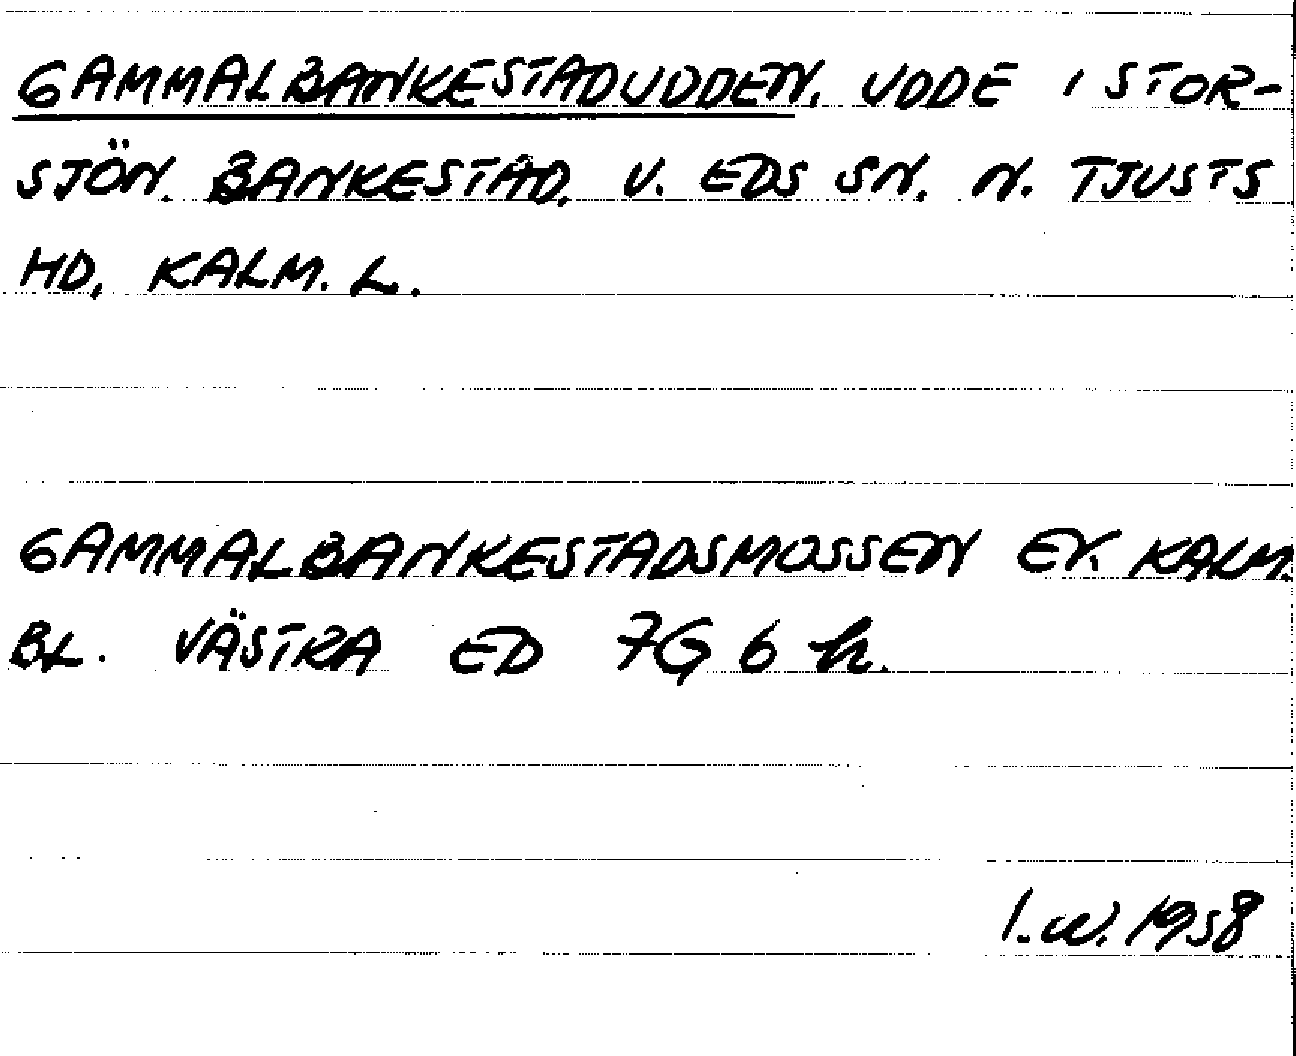 GAMMALBANKESTADUDDEN. UDDE I STOR-
SJÖN. BANKESTAD. V. EDS SN. N. TJUSTS
HD, KALM. L.
GAMMALBANKESTADSMOSSEN EK. KALM.
BL. VÄSTRA ED 7G 6 h.
I.W. 1958